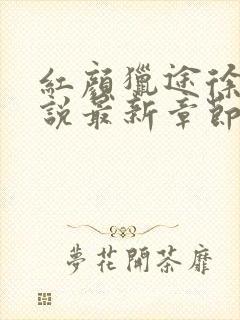 紅顏獵途徐
說最新章節
夢花開荼靡